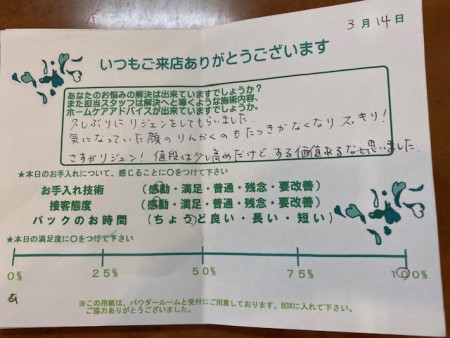 3月14日
いつもご来店ありがとうございます
あなたのお悩みの解決は出来ていますでしょうか?
また担当スタッフは解決へと導くような施術内容、
ホームケアアドバイスが出来ていますでしょうか。
久しぶりにリジェンをしてもらいました。
気になっていた顔のりんかくのもたつきがなくなりスッキリ!
さすがリジェン!値段は少し高めだけど、する価値あるなと思いました
★本日のお手入れについて、感じることに○をつけて下さい
お手入れ技術 (感動・満足・普通・残念・要改善)
接客態度 (感動・満足・普通・残念・要改善)
パックのお時間 (ちょうど良い・長い・短い)
★本日の満足度に○をつけて下さい
0% 25% 50% 75% 100%
※この用紙は、パウダールームと受付にご用意しております。BOXに入れて下さい。
ご協力ありがとうございました。